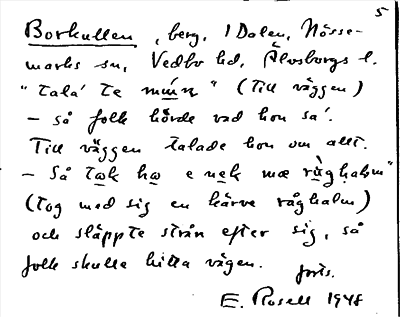 5
Borkullen, berg, i Dalen, Nösse-
marks sn, Vedbo hd, Älvsborgs l.
"tala' te múùn" (till väggen)
– så folk hörde vad hon sa'.
Till väggen talade hon om allt.
– Så tok ho e nek mæ rùghalm"
(tog med sig en kärve råghalm)
och släppte strån efter sig, så
folk skulle hitta vägen.
forts.
E. Rosell 1948